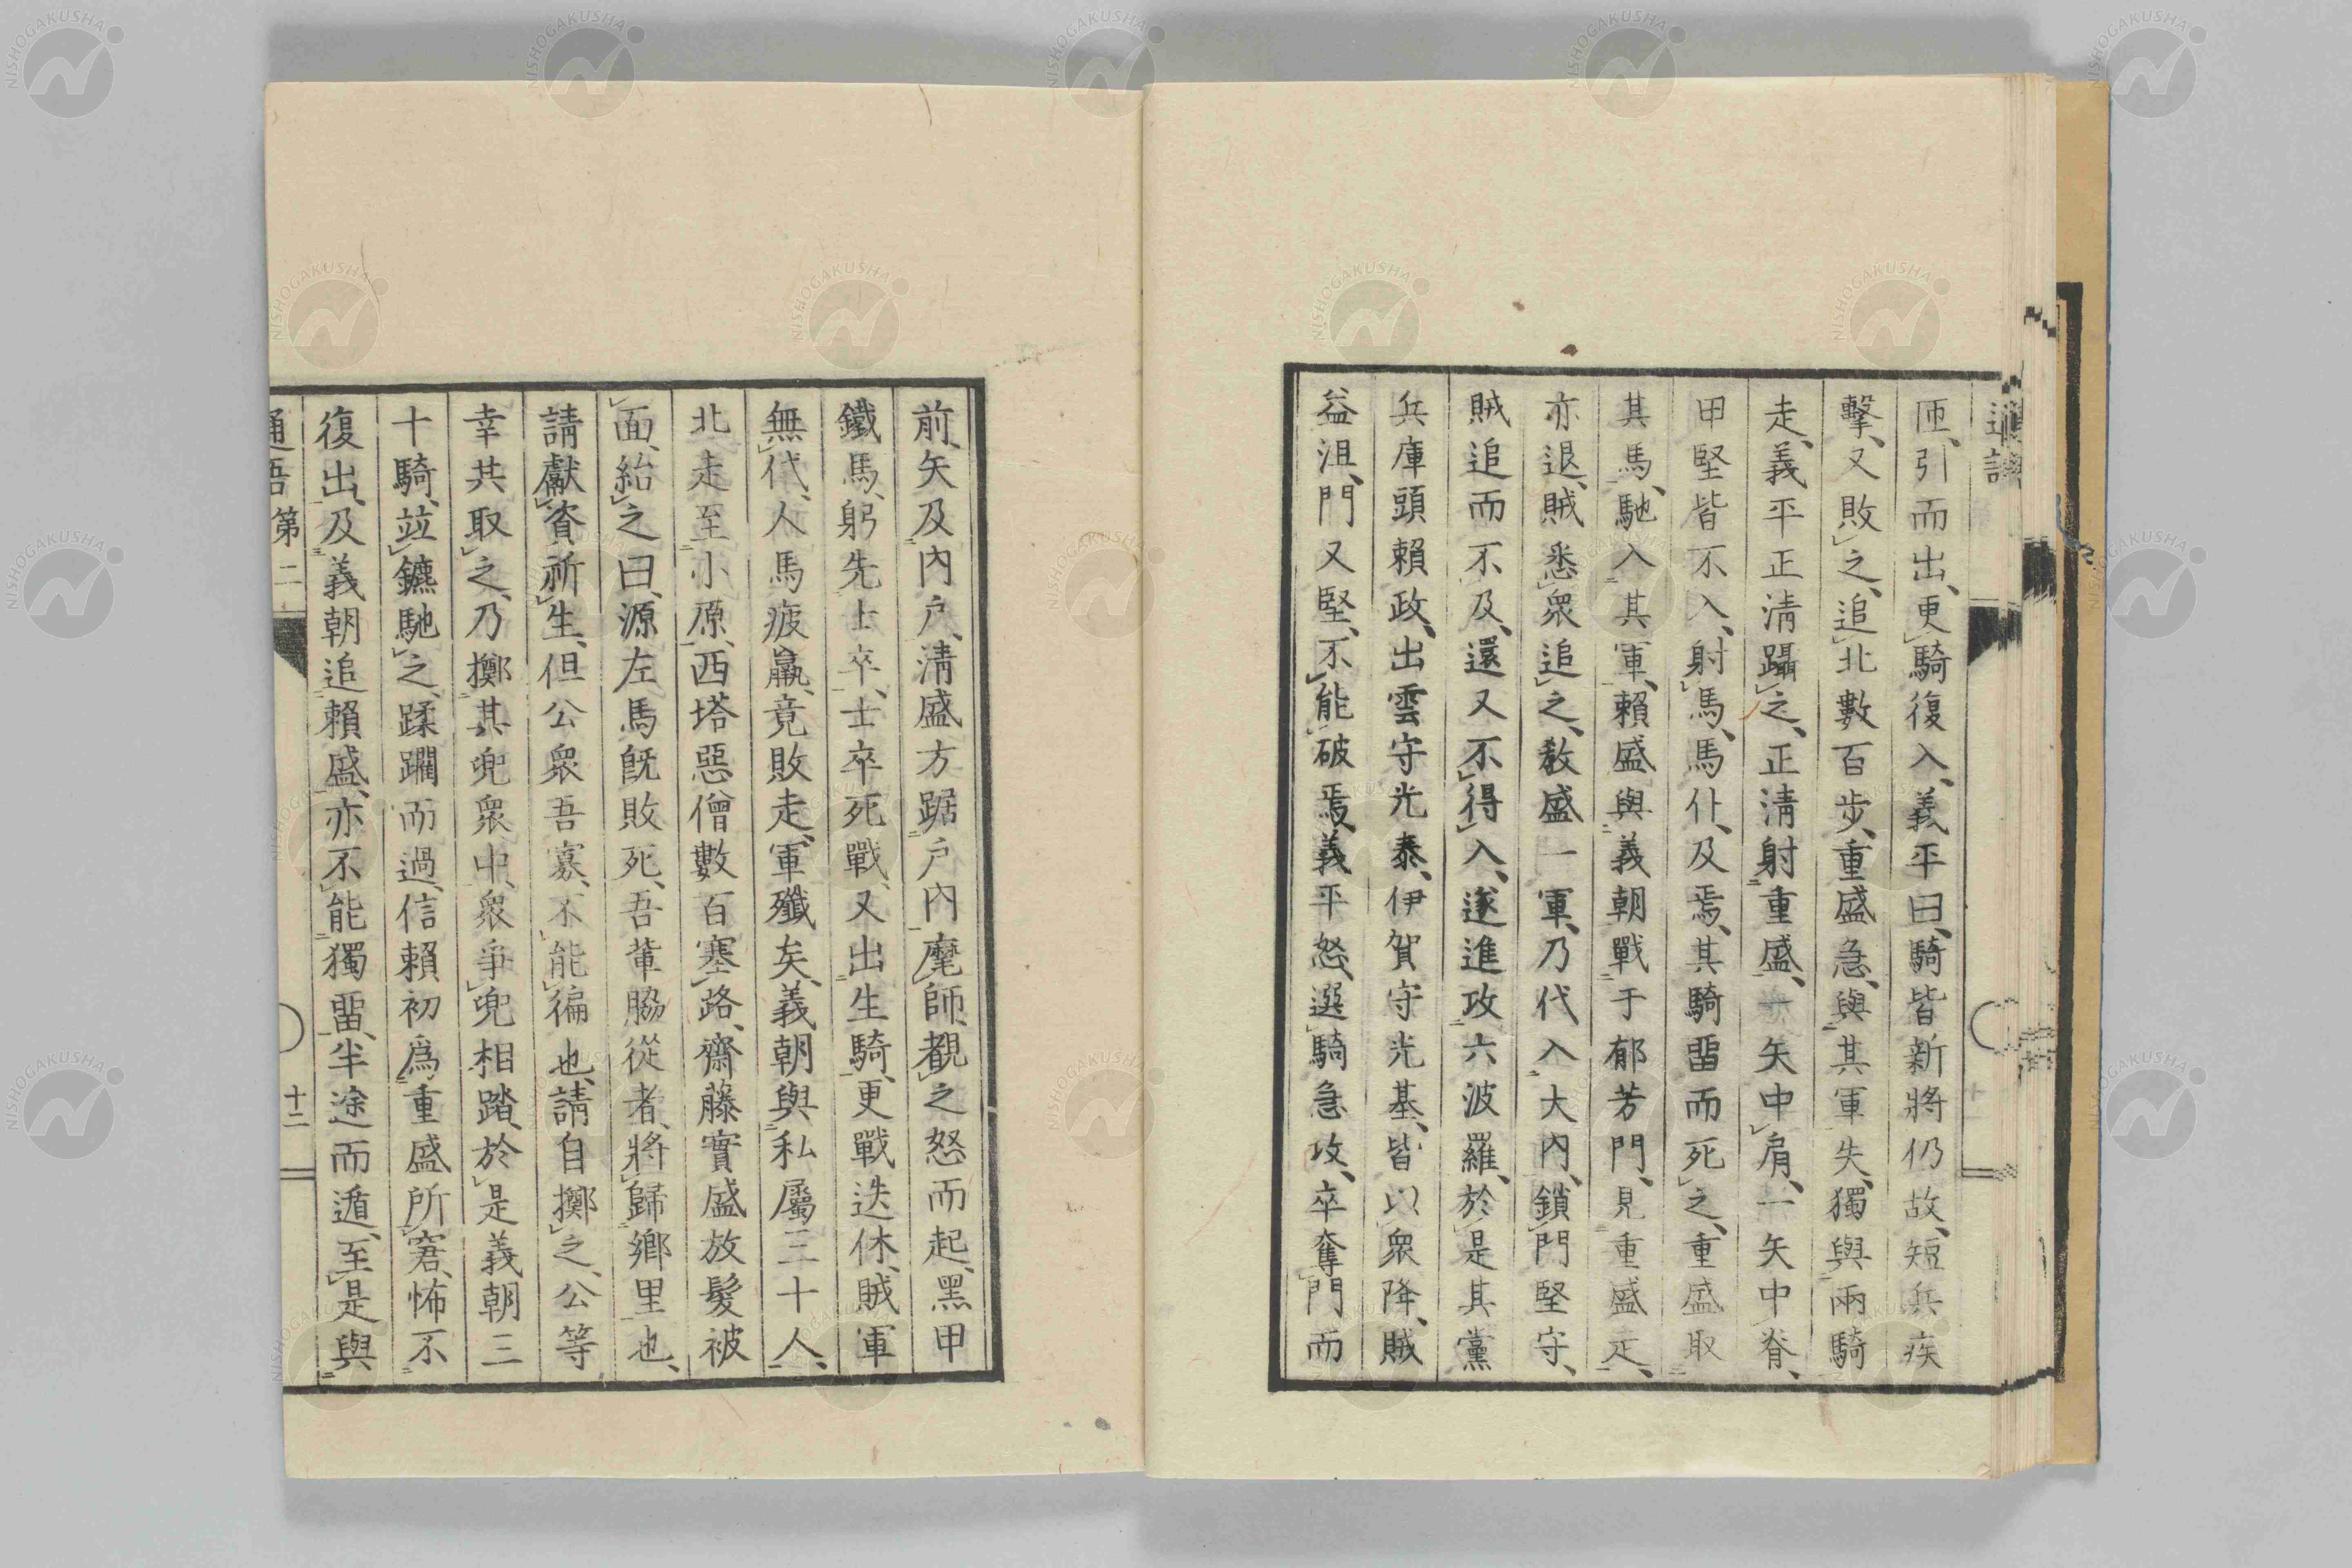 匝、引而出、更騎復入、義平曰、騎皆新將仍故、短兵疾
擊、又敗之、追北數百步、重盛急、與其軍失、獨與兩騎
走、義平正淸躡之、正淸射重盛、一矢中肩、一矢中脊、
甲堅皆不入、射馬、馬仆、及焉、其騎畱而死之、重盛取
其馬、馳入其軍、賴盛與義朝戰于郁芳門、見重盛走、
亦退、賊悉衆追之、敎盛一軍、乃代入大內、鎖門堅守、
賊追而不及、還又不得入、遂進攻六波羅、於是其黨
兵庫頭賴政、出雲守光泰、伊賀守光基、皆以衆降、賊
益沮、門又堅、不能破焉、義平怒、選騎急攻、卒奪門而
前、矢及內戶、淸盛方踞戶內麾師、覩之怒而起、黑甲
鐵馬、躬先士卒、士卒死戰、又出生騎、更戰迭休、賊軍
無代、人馬疲羸、竟敗走、軍殲矣、義朝與私屬三十人、
北走至小原、西塔惡僧數百塞路、齋藤實盛放髮被
面、紿之曰、源左馬旣敗死、吾輩脇從者、將歸鄕里也、
請獻資祈生、但公衆吾寡、不能徧也、請自擲之、公等
幸共取之、乃擲其兜衆中、衆爭兜相踏、於是義朝三
十騎、竝鑣馳之、蹂躙而過、信賴初爲重盛所窘、怖不
復出、及義朝追賴盛、亦不能獨畱、半途而遁、至是與
通語 第二
十二
NISHOGAKUSHA